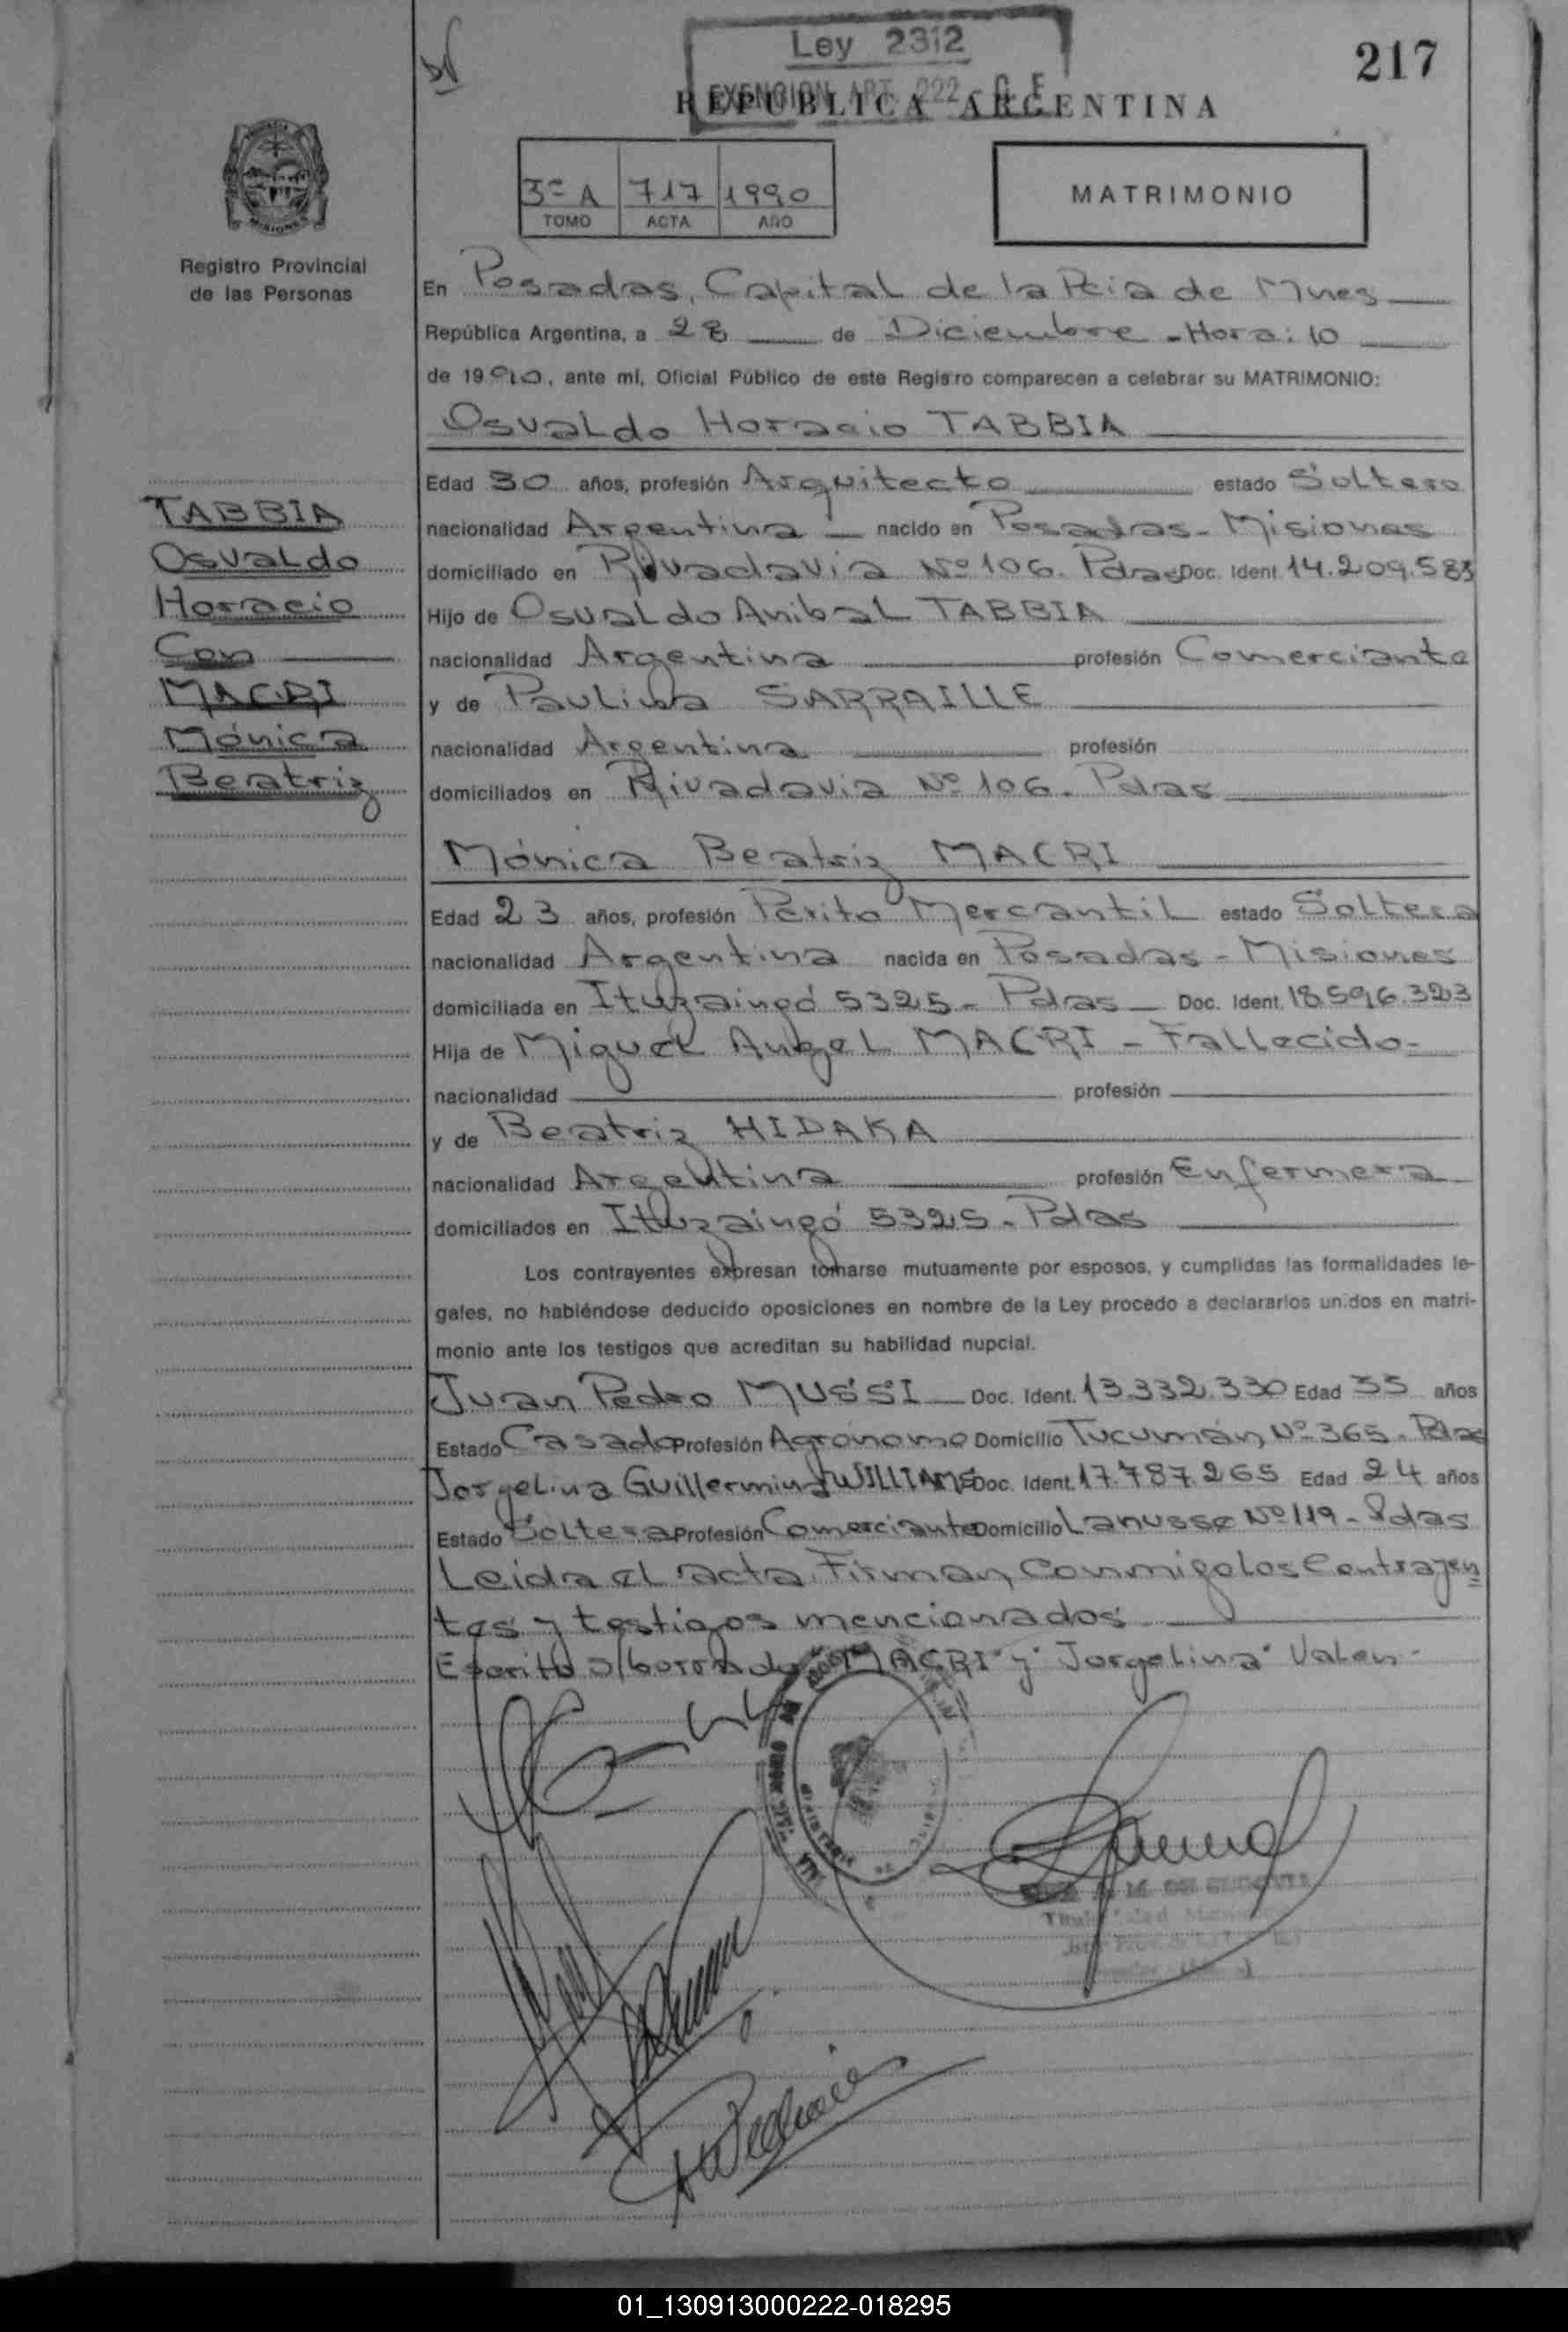 Ley 2312
EXENCION ART. 222 C. F.
217
REPUBLICA ARGENTINA
3º A 717 1990
TOMO ACTA AÑO
MATRIMONIO
MISIONES
Registro Provincial
de las Personas
En Posadas, Capital de la Pcia de Mnes
República Argentina, a 28 de Diciembre - Hora: 10
de 1990, ante mí, Oficial Público de este Registro comparecen a celebrar su MATRIMONIO:
Osvaldo Horacio TABBIA
Edad 30 años, profesión Arquitecto estado Soltero
nacionalidad Argentina nacido en Posadas - Misiones
domiciliado en Rivadavia Nº 106. Pdas Doc. Ident. 14.209.583
Hijo de Osvaldo Anibal TABBIA
nacionalidad Argentina profesión Comerciante
y de Paulina SARRAILLE
nacionalidad Argentina profesión
domiciliados en Rivadavia Nº 106. Pdas
TABBIA
Osvaldo
Horacio
Con
MACRI
Mónica
Beatriz
Mónica Beatriz MACRI
Edad 23 años, profesión Perito Mercantil estado Soltera
nacionalidad Argentina nacida en Posadas - Misiones
domiciliada en Ituzaingó 5325 - Pdas Doc. Ident. 18.596.323
Hija de Miguel Angel MACRI - Fallecido -
nacionalidad profesión
y de Beatriz HIDAKA
nacionalidad Argentina profesión Enfermera
domiciliados en Ituzaingó 5325 - Pdas
Los contrayentes expresan tomarse mutuamente por esposos, y cumplidas las formalidades le-
gales, no habiéndose deducido oposiciones en nombre de la Ley procedo a declararlos unidos en matri-
monio ante los testigos que acreditan su habilidad nupcial.
Juan Pedro MUSSI Doc. Ident. 13.332.330 Edad 33 años
Estado Casado Profesión Agrónomo Domicilio Tucumán Nº 365. Pdas
Jorgelina Guillermina WILLIAMS Doc. Ident. 17.787.265 Edad 24 años
Estado Soltera Profesión Comerciante Domicilio Lanusse Nº 119 - Pdas
Leida el acta, Firman Conmigo los Contrayen
tes y testigos mencionados
Escrito s/borrado "MACRI" y "Jorgelina" Valen -
01_130913000222-018295